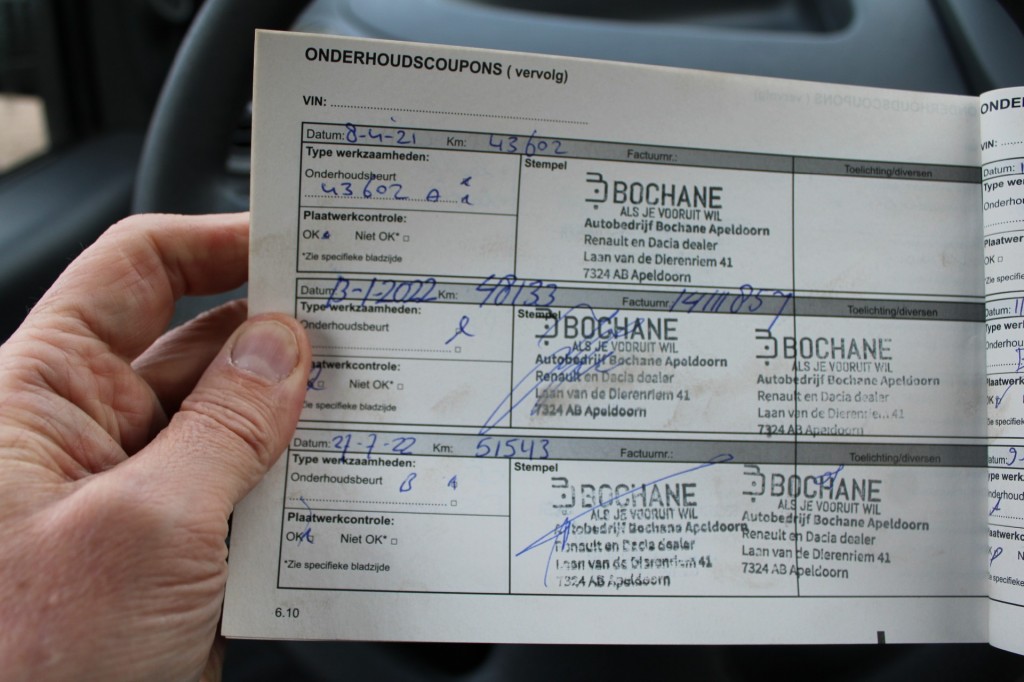 ONDERHOUDSCOUPONS ( vervolg)
VIN:
Datum: 8-4-21 Km: 43602 Factuurnr.: Toelichting/diversen
Type werkzaamheden:
Stempel
Onderhoudsbeurt
43602 A
Plaatwerkcontrole:
OK Niet OK*
*Zie specifieke bladzijde
BOCHANE
ALS JE VOORUIT WIL
Autobedrijf Bochane Apeldoorn
Renault en Dacia dealer
Laan van de Dierenriem 41
7324 AB Apeldoorn
Datum: 13-1-2022 Km: 48133 Factuurnr.: Toelichting/diversen
Type werkzaamheden:
Stempel
Onderhoudsbeurt
Niet OK*
Zie specifieke bladzijde
BOCHANE
ALS JE VOORUIT WIL
Autobedrijf Bochane Apeldoorn
Renault en Dacia dealer
Laan van de Dierenriem 41
7324 AB Apeldoorn
BOCHANE
ALS JE VOORUIT WIL
Autobedrijf Bochane Apeldoorn
Renault en Dacia dealer
Laan van de Dierenriem 41
7324 AB Apeldoorn
Datum: 21-7-22 Km: 51543 Factuurnr.: Toelichting/diversen
Type werkzaamheden:
Stempel
Onderhoudsbeurt B
Plaatwerkcontrole:
OK Niet OK*
*Zie specifieke bladzijde
BOCHANE
ALS JE VOORUIT WIL
Autobedrijf Bochane Apeldoorn
Renault en Dacia dealer
Laan van de Dierenriem 41
7324 AB Apeldoorn
BOCHANE
ALS JE VOORUIT WIL
Autobedrijf Bochane Apeldoorn
Renault en Dacia dealer
Laan van de Dierenriem 41
7324 AB Apeldoorn
6.10
VIN:
Datum:
OK